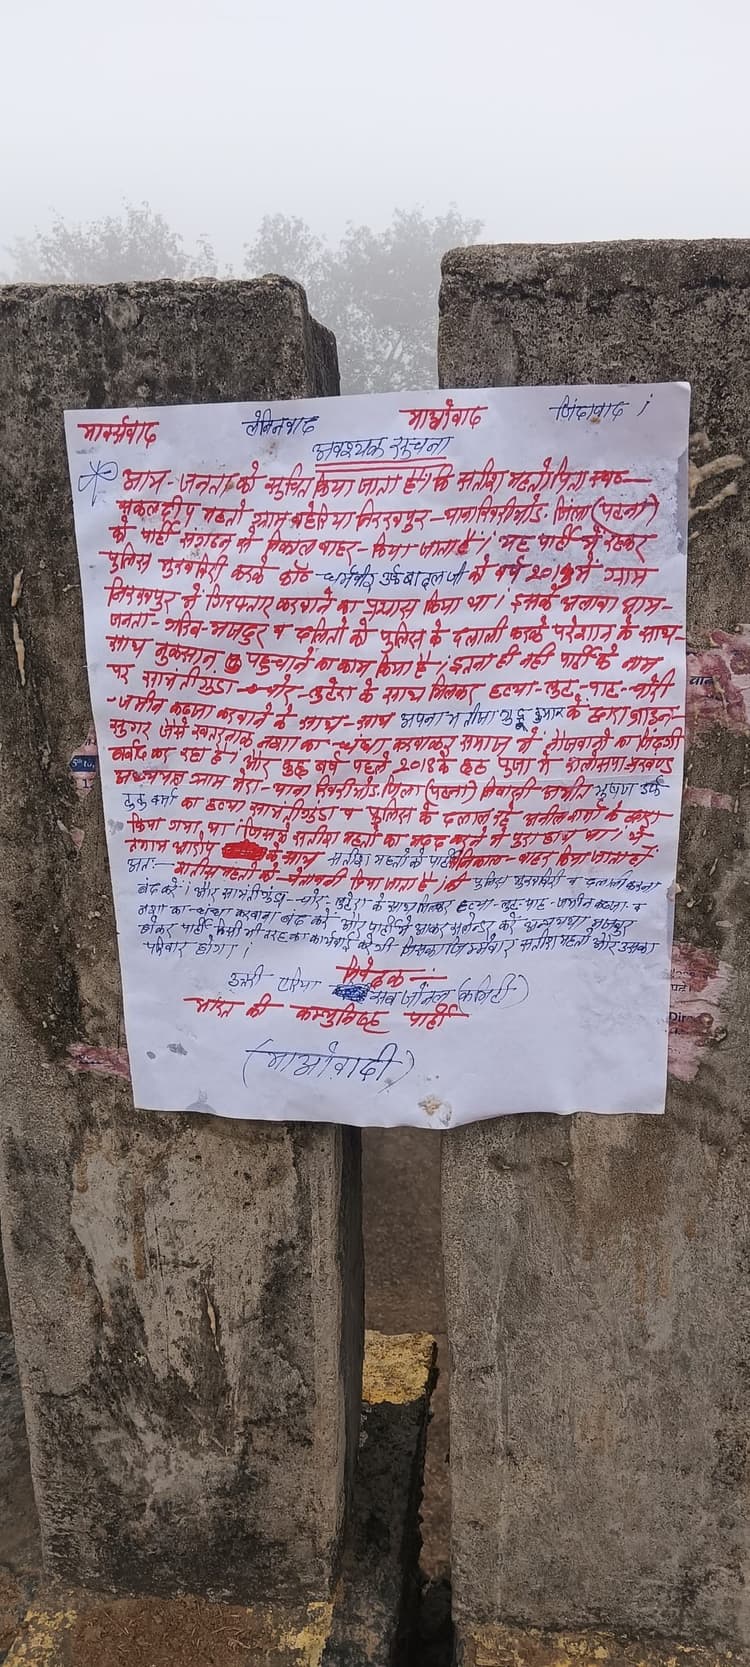 मार्क्सवाद लेनिनवाद माओवाद जिंदावाद ।
अवश्यक सूचना
आम-जनता को सूचित किया जाता है। कि सतीश महतो पिता स्व०-
सकलदीप महतो ग्राम निरखपुर-थाना जिला (पटना)
को पार्टी संगठन से निकाल बाहर-किया जाता है। यह पार्टी में रहकर
पुलिस मुखबिरी करके कॉ०-धर्मवीर उर्फ बादल जी को वर्ष में ग्राम
निरखपुर में गिरफ्तार करवाने का प्रयास किया था। इसके अलावा आम-
जनता-गरिब-मजदुर व दलितों को पुलिस के दलाली करके परेशान के साथ-
साथ नुकसान पहुचाने का काम किया है। इतना ही नही पार्टी के नाम
पर सामंती गुंडा-चोर-लुटेरा के साथ मिलकर हत्या-लुट-पाट-चोरी
-जमीन कब्जा करवाने के साथ-साथ अपना भतीजा गुड्डू कुमार के द्वारा ब्राउन-
सुगर जैसे खतरनाक नशा का-धंधा करवाकर समाज में नौजवानो का जिंदगी
बर्वाद कर रहा है। और कुछ वर्ष पहले 2018 के छठ पूजा में
ग्राम थाना जिला (पटना) निवासी- भूषण उर्फ
वर्मा का हत्या सामंती गुंडा व पुलिस के दलाल रहे अनील शर्मा के द्वारा
किया गया था। जिसमें सतीश महतो का मदद करने में पुरा हाथ था। में
तमाम आरोप के साथ सतीश महतो को पार्टी निकाल-बाहर किया जाता है।
अतः- सतीस महतो को-चेतावनी किया जाता है। की पुलिस मुखबिरी व दलाली करना
बंद करे। और सामंती गुंडा-चोर-लुटेरा के साथ मिलकर हत्या-लुट-पाट-जमीन कब्जा-व
नशा का-धन्धा करवाना बंद करे-और पार्टी में आकर सलेन्डर करे अन्यथा मजबुर
होकर पार्टी किसी भी तरह का कार्रवाई करेगी जिसका जिम्मेवार सतीश महतो और उसका
परिवार होगा।
निवेदक:-
उतरी एरिया सब जोनल कमिटी)
भारत की कम्युनिस्ट पार्टी
(माओवादी)